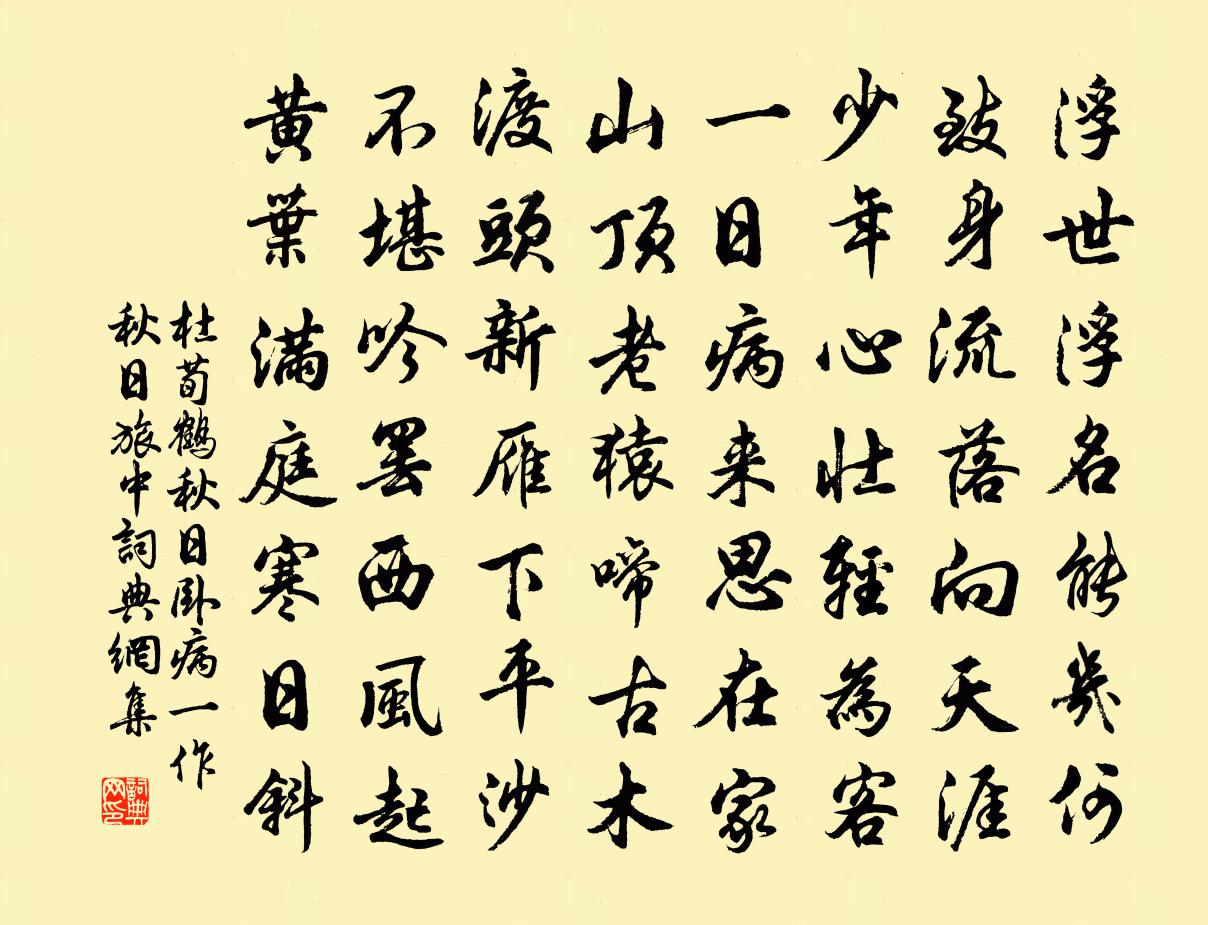 浮世浮名能幾何
致身流落向天涯
少年心壯輕為客
一日病来思在家
山頂老猿啼古木
渡頭新雁下平沙
不堪吟罢西風起
黃葉滿庭寒日斜
杜荀鶴秋日卧病一作
秋日旅中詞典網集
詞典网印